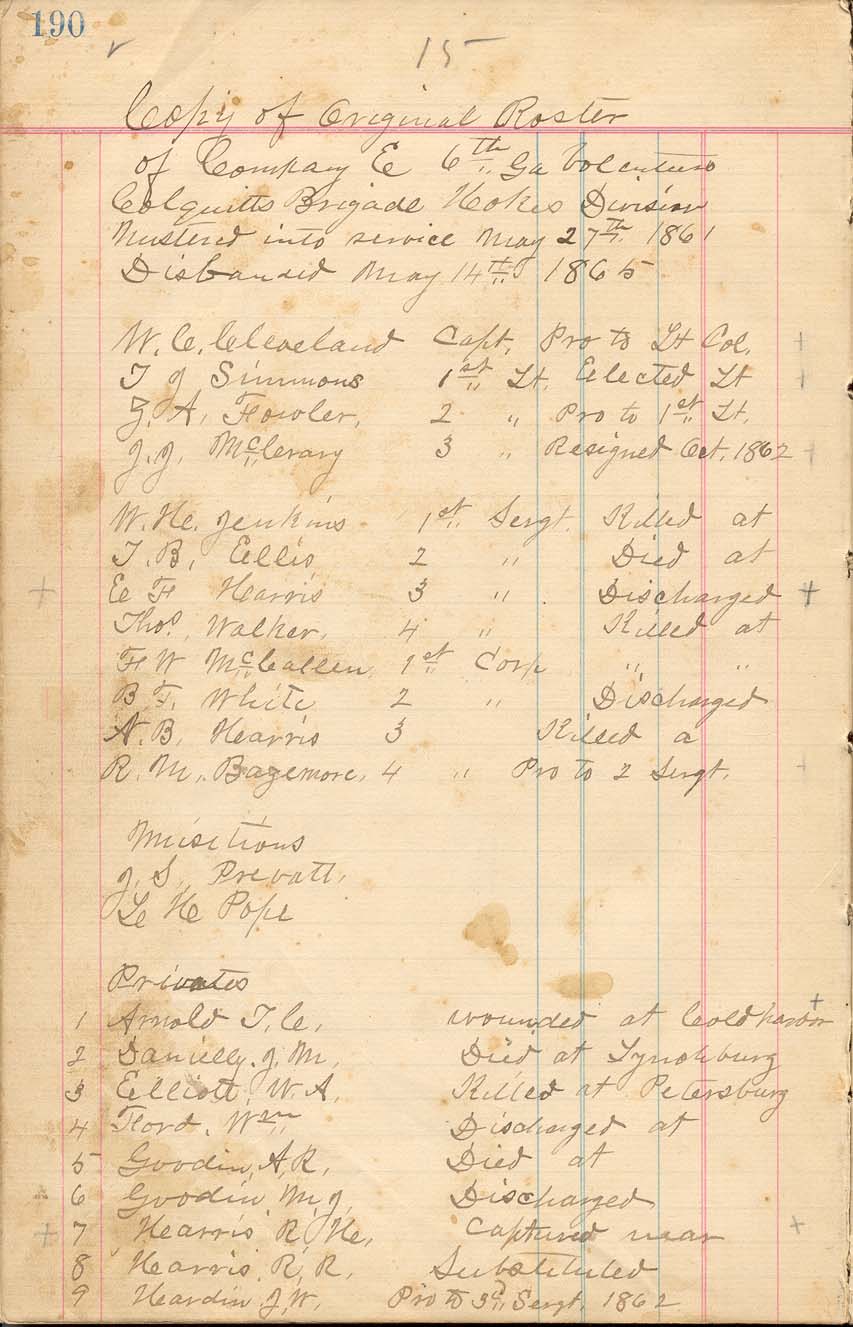 190
15
Copy of Original Roster
of Company E 6th Ga Volenteers
Colquitts Brigade Hokes Division
Mustered into service May 27th 1861
Disbanded May 14th 1865
W. C. Cleveland Capt. Pro to Lt Col.
T J Simmons 1st Lt. Elected Lt
Z. A. Fowler, 2 " Pro to 1st Lt.
J. J. McCrary 3 " Resigned Oct. 1862
W. H. Jenkins 1st Sergt. Killed at
T. B. Ellis 2 " Died at
E F Harris 3 " Discharged
Thos. Walker. 4 " Killed at
F W McCallen 1st Corp " "
B F. White 2 " Discharged
N. B. Harris 3 Killed a
R. M. Bazemore, 4 " Pro to 2 Sergt.
Musitions
J. S. Prevatt.
L H Pope
Privates
1 Arnold T. C. wounded at Coldharbor
2 Danielly. J. M. Died at Lynchburg
3 Elliott, W. A. Killed at Petersburg
4 Ford. Wm Discharged at
5 Goodin, A, R. Died at
6 Goodin M, J, Discharged
7 Harris R, H, Captured near
8 Harris R, R. Substituted
9 Hardin J, W. Pro to 3d Sergt. 1862